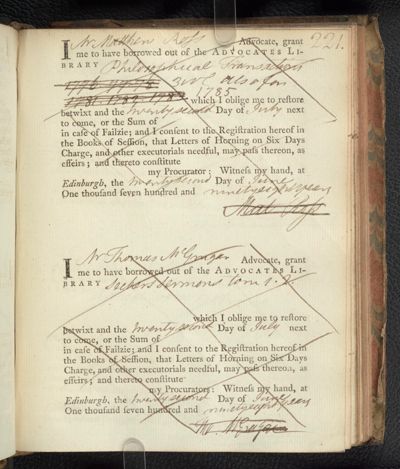 221.
I Mr Matthew Ross Advocate, grant
me to have borrowed out of the ADVOCATES LI-
BRARY Philosophical Transactions
3 vol. also for
1781. 1782. 1783 1785
which I oblige me to restore
betwixt and the twenty second Day of July next
to come, or the Sum of
in case of Failzie; and I consent to the Registration hereof in
the Books of Session, that Letters of Horning on Six Days
Charge, and other executorials needful, may pass thereon, as
effeirs; and thereto constitute
my Procurator: Witness my hand, at
Edinburgh, the twenty second Day of June
One thousand seven hundred and ninety eight years
Mat. Ross
I Mr Thomas McGrugar Advocate, grant
me to have borrowed out of the ADVOCATES LI-
BRARY Seckers Sermons tom 1. 2.
which I oblige me to restore
betwixt and the twenty second Day of July next
to come, or the Sum of
in case of Failzie; and I consent to the Registration hereof in
the Books of Session, that Letters of Horning on Six Days
Charge, and other executorials needful, may pass thereon, as
effeirs; and thereto constitute
my Procurators: Witness my hand, at
Edinburgh, the twenty second Day of June
One thousand seven hundred and ninety eight years
Tho. McGrugar